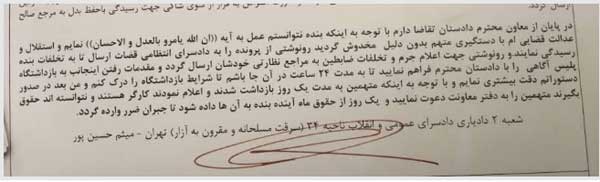 ارسال گردد.
قرار از سوی شاکی جهت رسیدگی باحفظ بدل به مرجع صالح
در پایان از معاون محترم دادستان تقاضا دارم با توجه به اینکه بنده نتوانستم عمل به آیه ((ان الله یامرو بالعدل و الاحسان)) نمایم و استقلال و
عدالت قضایی ام با دستگیری متهم بدون دلیل مخدوش گردید رونوشتی از پرونده را به دادسرای انتظامی قضات ارسال تا به تخلفات بنده
رسیدگی نمایند و رونوشتی جهت اعلام جرم و تخلفات ضابطین به مراجع نظارتی خودشان ارسال گردد و مقدمات رفتن اینجانب به بازداشتگاه
پلیس آگاهی را با دادستان محترم فراهم نمایید تا به مدت ۲۴ ساعت در آن جا باشم تا شرایط بازداشتگاه را درک کنم و من بعد در صدور
دستوراتم دقت بیشتری نمایم و با توجه به اینکه متهمین به مدت یک روز بازداشت شدند و اعلام نمودند کارگر هستند و نتوانسته اند حقوق
بگیرند متهمین را به دفتر معاونت دعوت نمایید و یک روز از حقوق ماه آینده بنده به آن ها داده شود تا جبران ضرر وارده گردد.
شعبه ۲ دادیاری دادسرای عمومی و انقلاب ناحیه ۳۴ (سرقت مسلحانه و مقرون به آزار) تهران - میثم حسین پور